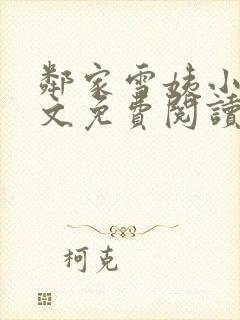 鄰家雪姨小
文免費閱讀
柯克